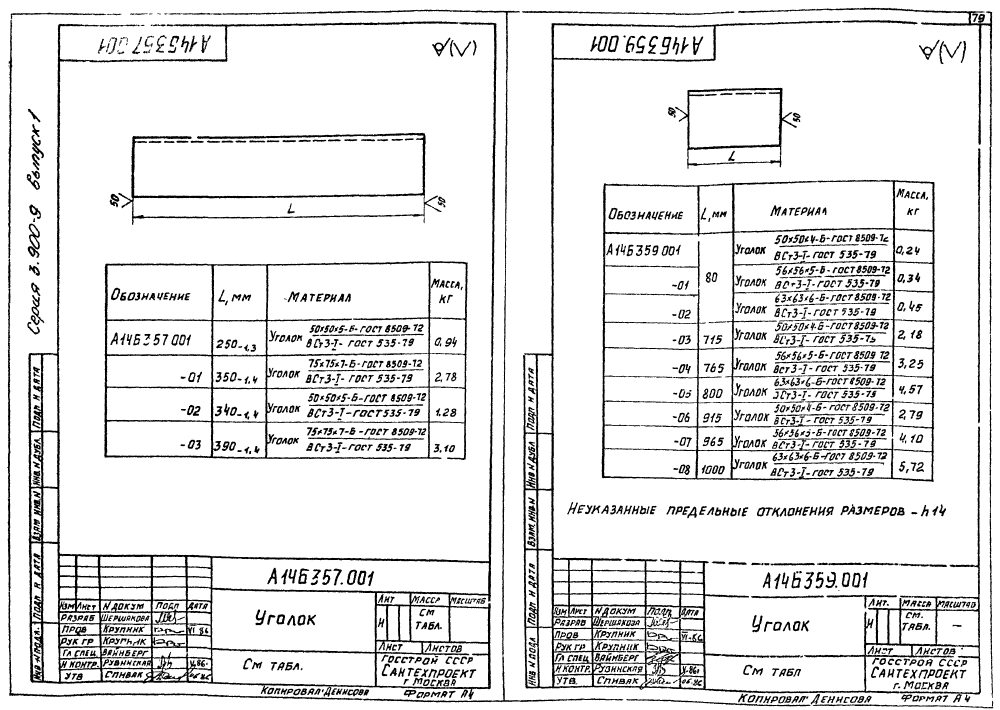 79
Серия 3.900-9 Выпуск 1
А14Б357.001
√(√)
L
50
50
Обозначение L, мм Материал Масса, кг
А14Б357.001 250-1,3 Уголок 50×50×5-Б-ГОСТ 8509-72 / ВСт3-I-ГОСТ 535-79 0,94
-01 350-1,4 Уголок 75×75×7-Б-ГОСТ 8509-72 / ВСт3-I-ГОСТ 535-79 2,78
-02 340-1,4 Уголок 50×50×5-Б-ГОСТ 8509-72 / ВСт3-I-ГОСТ 535-79 1.28
-03 390-1,4 Уголок 75×75×7-Б-ГОСТ 8509-72 / ВСт3-I-ГОСТ 535-79 3,10
Подп и дата
Инв №дубл
Взам инв.№
Подп и дата
Инв №подл.
А14Б357.001
Изм Лист №докум Подп Дата
Разраб Шершакова
Пров Крупник VI 86
Рук гр Крупник
Гл спец. Вайнберг
Н контр. Рувинская V.86
Утв Спивак 06.86
Уголок
См табл.
Лит Масса Масштаб
И См табл.
Лист Листов
Госстрой СССР
Сантехпроект
г Москва
Копировал: Денисова Формат А4
А14Б359.001
√(√)
50
50
L
Обозначение L, мм Материал Масса, кг
А14Б359 001 80 Уголок 50×50×4-Б-ГОСТ 8509-72 / ВСт3-I-ГОСТ 535-79 0,24
-01 Уголок 56×56×5-Б-ГОСТ 8509-72 / ВСт3-I-ГОСТ 535-79 0,34
-02 Уголок 63×63×6-Б-ГОСТ 8509-72 / ВСт3-I-ГОСТ 535-79 0,45
-03 715 Уголок 50×50×4-Б-ГОСТ 8509-72 / ВСт3-I-ГОСТ 535-79 2,18
-04 765 Уголок 56×56×5-Б-ГОСТ 8509-72 / ВСт3-I-ГОСТ 535-79 3,25
-05 800 Уголок 63×63×6-Б-ГОСТ 8509-72 / ВСт3-I-ГОСТ 535-79 4,57
-06 915 Уголок 50×50×4-Б-ГОСТ 8509-72 / ВСт3-I-ГОСТ 535-79 2,79
-07 965 Уголок 56×56×5-Б-ГОСТ 8509-72 / ВСт3-I-ГОСТ 535-79 4,10
-08 1000 Уголок 63×63×6-Б-ГОСТ 8509-72 / ВСт3-I-ГОСТ 535-79 5,72
Неуказанные предельные отклонения размеров - h14
Подп и дата
Инв №дубл
Взам. инв.№
Подп и дата
Инв №подл
А14Б359.001
Изм Лист №докум Подп Дата
Разраб Шершакова
Пров Крупник VI-86
Рук гр Крупник
Гл спец Вайнберг
Н контр Рувинская V.86
Утв. Спивак 06.86
Уголок
См табл
Лит. Масса Масштаб
И См. табл. —
Лист Листов
Госстрой СССР
Сантехпроект
г. Москва
Копировал: Денисова Формат А4